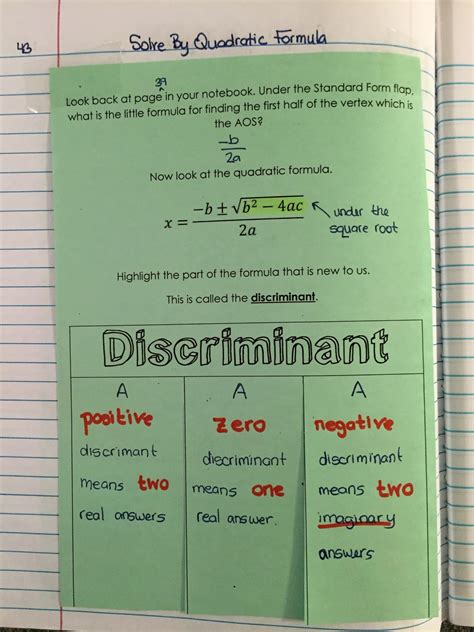 43
Solve By Quadratic Formula
39
Look back at page ^ in your notebook. Under the Standard Form flap,
what is the little formula for finding the first half of the vertex which is
the AOS?
-b
2a
Now look at the quadratic formula.
x = (-b ± √b² − 4ac) / 2a
under the
square root
Highlight the part of the formula that is new to us.
This is called the discriminant.
Discriminant
A
positive
discrimant
means two
real answers
A
zero
discriminant
means one
real answer.
A
negative
discriminant
means two
imaginary
answers